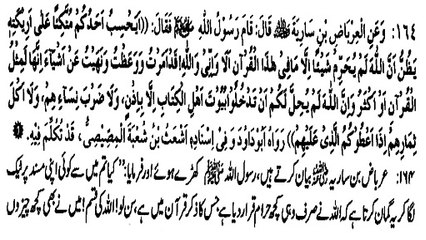 ١٦٤: وَعَنِ الْعِرْبَاضِ بْنِ سَارِيَةَ ﷺ قَالَ: قَامَ رَسُولُ اللهِ ﷺ فَقَالَ: ((اَيَحْسِبُ اَحَدُكُمْ مُتَّكِئًا عَلٰى اَرِيْكَتِهِ
يَظُنُّ اَنَّ اللهَ لَمْ يُحَرِّمْ شَيْئًا اِلَّا مَا فِىْ هٰذَا الْقُرْآنِ اَلَا وَاِنِّىْ وَاللهِ قَدْ اَمَرْتُ وَوَعَظْتُ وَنَهَيْتُ عَنْ اَشْيَآءَ اِنَّهَا لَمِثْلُ
الْقُرْآنِ اَوْ اَكْثَرُ وَاِنَّ اللهَ لَمْ يُحِلَّ لَكُمْ اَنْ تَدْخُلُوْا بُيُوْتَ اَهْلِ الْكِتَابِ اِلَّا بِاِذْنٍ، وَلَا ضَرْبَ نِسَاءِهِمْ، وَلَا اَكْلَ
ثِمَارِهِمْ اِذَا اَعْطَوْكُمُ الَّذِىْ عَلَيْهِمْ)) رَوَاهُ اَبُوْدَاوُدَ وَفِىْ اِسْنَادِهٖ اَشْعَثُ بْنُ شُعْبَةَ الْمِصِّيْصِىُّ، قَدْ تُكُلِّمَ فِيْهِ.
۱۶۴: عرباض بن ساریہ بیان کرتے ہیں، رسول اللہ ﷺ کھڑے ہوئے اور فرمایا: ’’کیا تم میں سے کوئی اپنی مسند پر ٹیک
لگا کر یہ گمان کرتا ہے کہ اللہ نے صرف وہی کچھ حرام قرار دیا ہے جس کا ذکر قرآن میں ہے، سن لو! اللہ کی قسم! میں نے بھی کچھ چیزوں